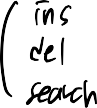 ins
del
search